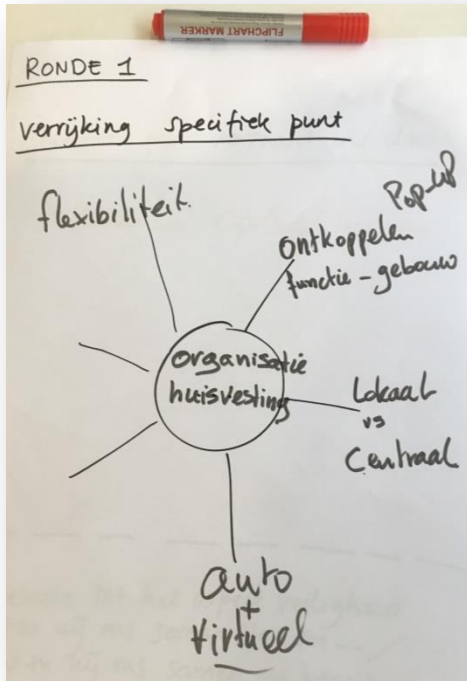 FLIPCHART MARKER
RONDE 1
verrijking specifiek punt
flexibiliteit
Pop-up
ontkoppelen
functie - gebouw
organisatie
huisvesting
Lokaal
vs
Centraal
auto
+
virtueel